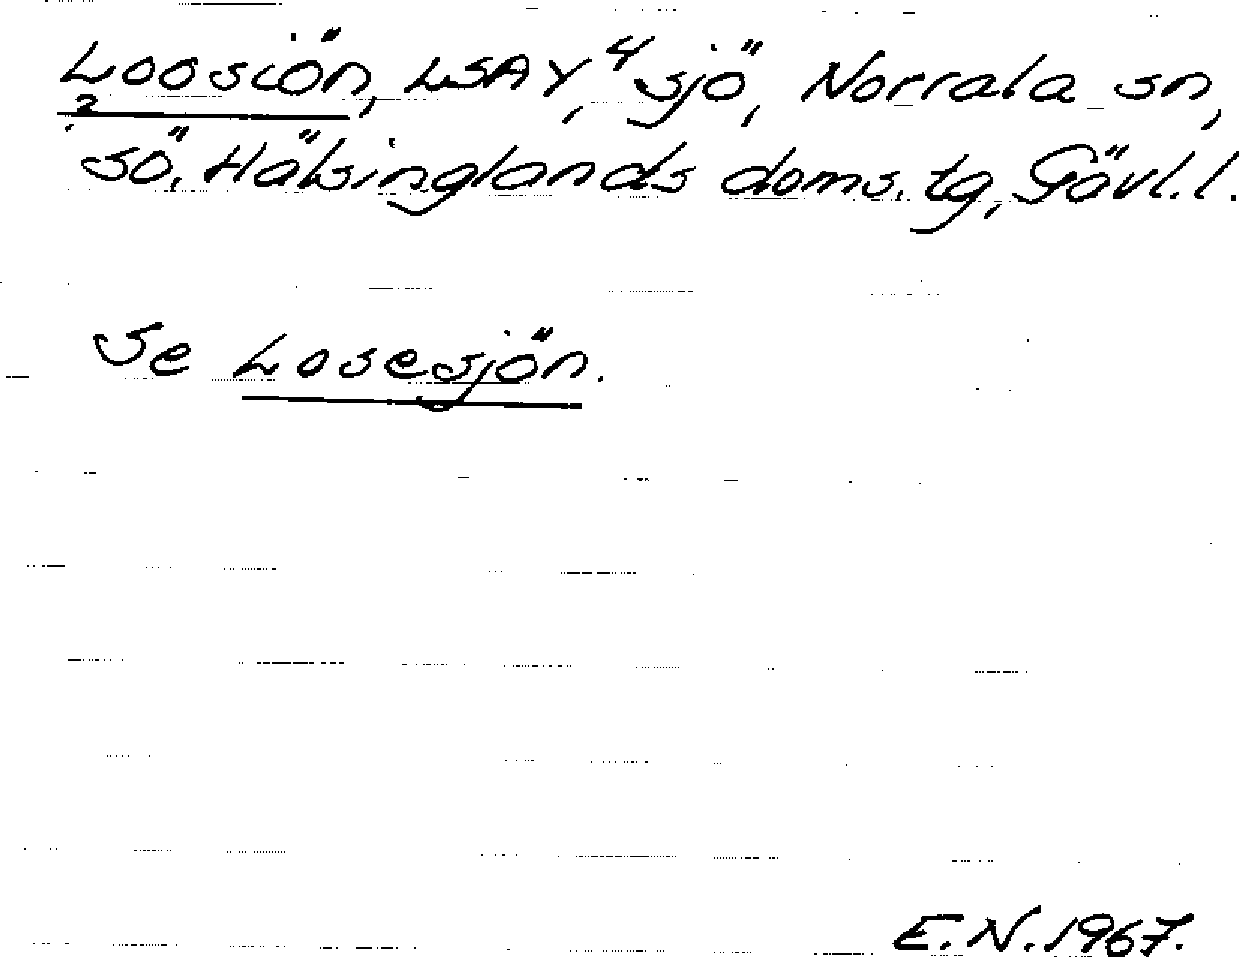 Loosiön, LSA Y, 4 sjö, Norrala sn,
2
sö. Hälsinglands doms. tg, Gävl. l.
Se Losesjön.
E.N. 1967.